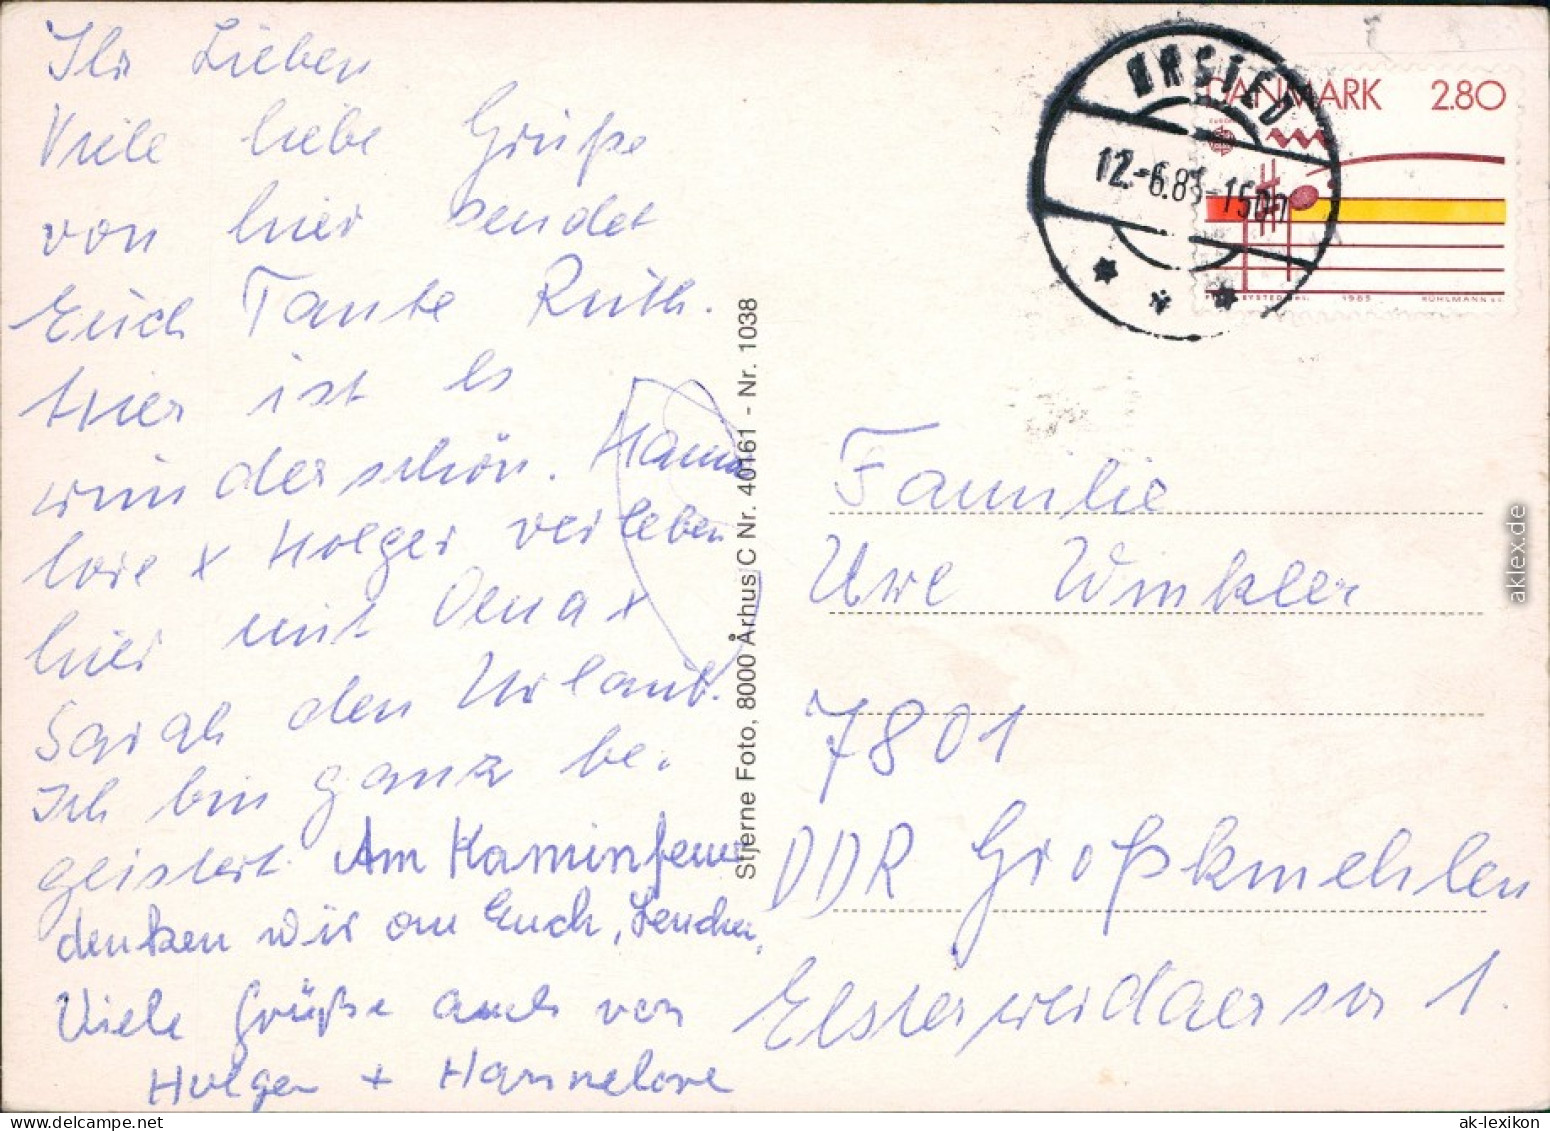 Ihr Lieben
Viele liebe Grüße
von hier sendet
Euch Tante Ruth.
Hier ist es
wunderschön. Hanne
lore + Holger verleben
hier mit Oena +
Sarah den Urlaub.
Ich bin ganz be-
geistert. Am Kaminfeuer
denken wir an Euch,
Viele Grüße auch von
Holger + Hannelore
Stjerne Foto, 8000 Århus C Nr. 40161 - Nr. 1038
ØRSTED
12.-6.85-15
DANMARK 2.80
EUROPA
1985
KÜHLMANN sc.
Familie
Uwe Winkler
7801
DDR Großkmehlen
Elsterwerdaer str 1.
aklex.de
ak-lexikon